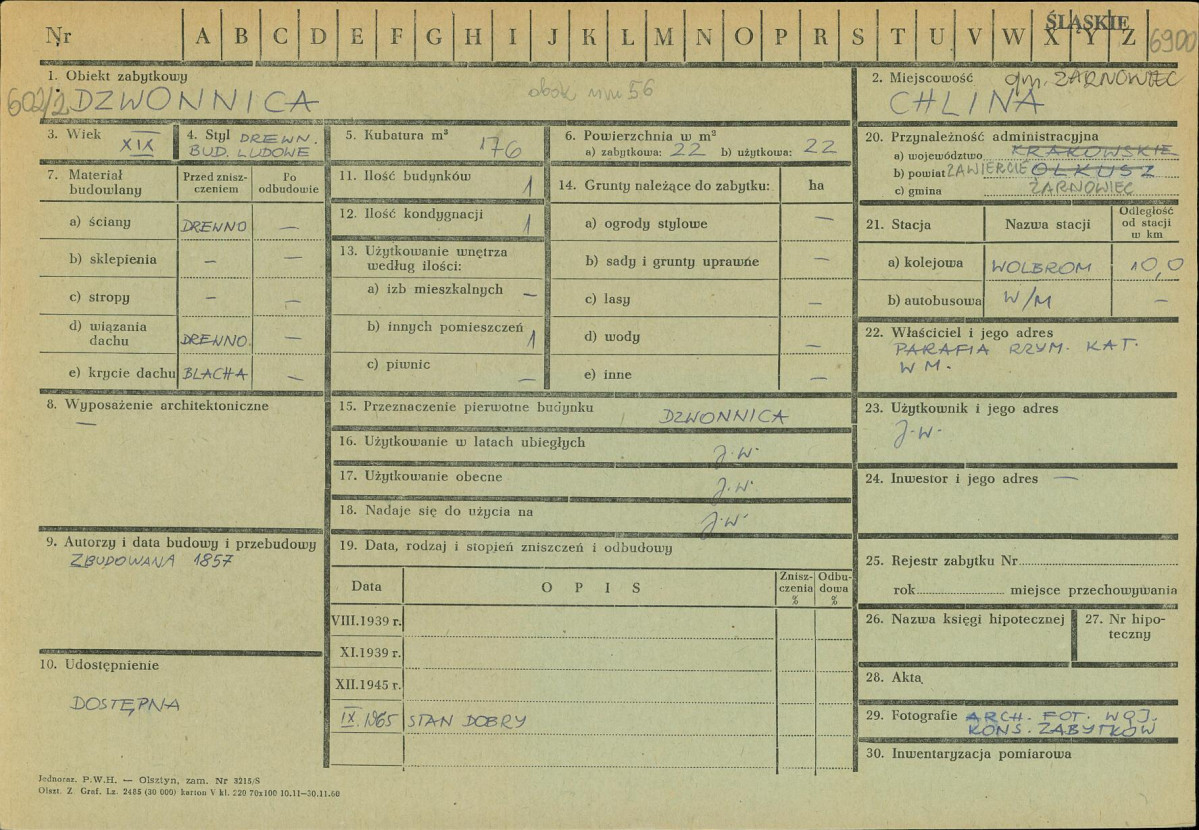 ŚLĄSKIE
Nr A B C D E F G H I J K L M N O P R S T U V W X Y Z 6900
1. Obiekt zabytkowy
602/2 DZWONNICA obok nru 56
2. Miejscowość gm. ŻARNOWIEC
CHLINA
3. Wiek
XIX
4. Styl DREWN.
BUD. LUDOWE
5. Kubatura m³
176
6. Powierzchnia w m²
a) zabytkowa: 22 b) użytkowa: 22
20. Przynależność administracyjna
a) województwo KRAKOWSKIE
b) powiat ZAWIERCIE OLKUSZ
c) gmina ŻARNOWIEC
7. Materiał budowlany
Przed znisz-
czeniem
Po
odbudowie
a) ściany DREWNO —
b) sklepienia — —
c) stropy — —
d) wiązania
dachu DREWNO. —
e) krycie dachu BLACHA —
11. Ilość budynków 1
12. Ilość kondygnacji 1
13. Użytkowanie wnętrza
według ilości:
a) izb mieszkalnych —
b) innych pomieszczeń 1
c) piwnic —
14. Grunty należące do zabytku: ha
a) ogrody stylowe —
b) sady i grunty uprawne —
c) lasy —
d) wody —
e) inne —
21. Stacja Nazwa stacji Odległość
od stacji
w km
a) kolejowa WOLBROM 10,0
b) autobusowa W/M —
22. Właściciel i jego adres
PARAFIA RZYM. KAT.
W M.
8. Wyposażenie architektoniczne
—
15. Przeznaczenie pierwotne budynku DZWONNICA
16. Użytkowanie w latach ubiegłych J.W.
17. Użytkowanie obecne J.W.
18. Nadaje się do użycia na J.W.
23. Użytkownik i jego adres
J.W.
24. Inwestor i jego adres —
9. Autorzy i data budowy i przebudowy
ZBUDOWANA 1857
19. Data, rodzaj i stopień zniszczeń i odbudowy
Data O P I S Znisz-
czenia
% Odbu-
dowa
%
VIII.1939 r.
XI.1939 r.
XII.1945 r.
IX.1965 STAN DOBRY
25. Rejestr zabytku Nr
rok miejsce przechowywania
26. Nazwa księgi hipotecznej
27. Nr hipo-
teczny
10. Udostępnienie
DOSTĘPNA
28. Akta
29. Fotografie ARCH. FOT. WOJ.
KONS. ZABYTKÓW
30. Inwentaryzacja pomiarowa
Jednoraz. P.W.H. — Olsztyn, zam. Nr 3215/S
Olszt. Z. Graf. Lz. 2485 (30 000) karton V kl. 220 70x100 10.11—30.11.60